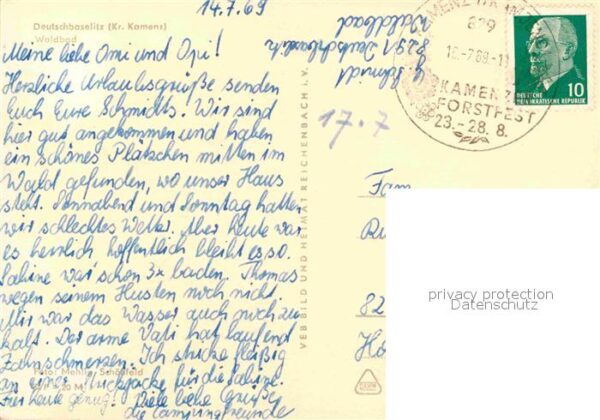 14.7.69
Deutschbaselitz (Kr. Kamenz)
Waldbad
Meine liebe Omi und Opi!
Herzliche Urlaubsgrüße senden
Euch Eure Schmidts. Wir sind
hier gut angekommen und haben
ein schönes Plätzchen mitten im
Wald gefunden, wo unser Haus
steht. Sonnabend und Sonntag hatten
wir schlechtes Wetter. Aber heute war
es herrlich hoffentlich bleibt es so.
Sabine war schon 3x baden. Thomas
wegen seinem Husten noch nicht.
Mir war das Wasser auch noch zu
kalt. Der arme Vati hat laufend
Zahnschmerzen. Ich stricke fleißig
an einer Strickjacke für die Sabine.
Für heute genug! Viele liebe Grüße
die Campingfreunde
Foto: Mehlig, Schönfeld
VEB BILD UND HEIMAT REICHENBACH i. V.
Schmidt
8291 Deutschbaselitz
Waldbad
17.7
KAMENZ
829
-7.69-11
KAMENZ
FORSTFEST
23.-28. 8.
10
DEUTSCHE
DEMOKRATISCHE REPUBLIK
Fam
82
privacy protection
Datenschutz